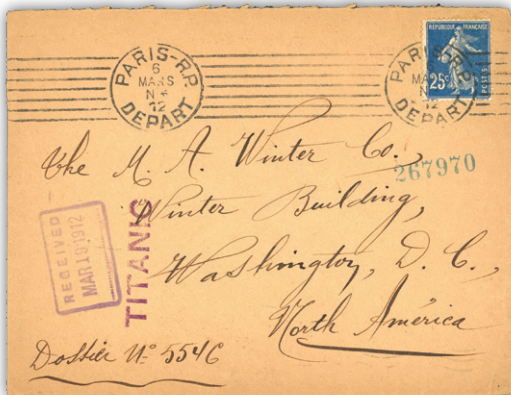 PARIS-R.P.
6
MARS
N 4
12
DEPART
PARIS-R.P.
DEPART
REPUBLIQUE FRANÇAISE
25c
POSTES
The M. A. Winter Co.,
267970
Winter Building,
Washington, D. C.,
North America
RECEIVED
MAR 19 1912
TITANIC
Dossier No 5546